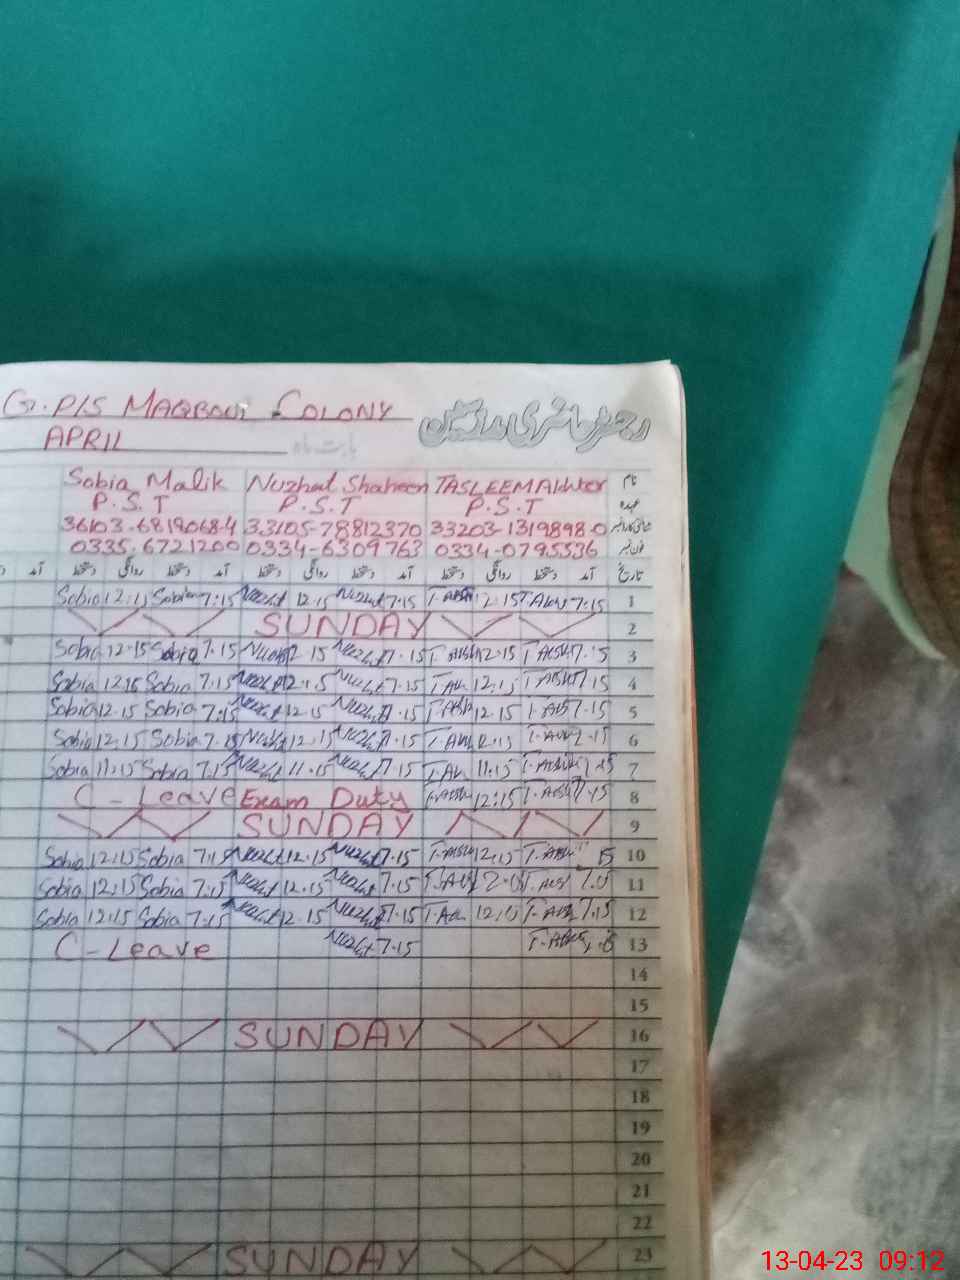 G. P/S MAQBOOL COLONY رجسٹر حاضری مدرسین
APRIL بابت ماہ
Sobia Malik Nuzhat Shaheen TASLEEM Akhter نام
P.S.T P.S.T P.S.T عہدہ
36103-6819068-4 33105-78812370 33203-1319898-0
0335-6721200 0334-6309763 0334-0795536 فون نمبر
آمد دستخط روانگی دستخط آمد دستخط روانگی دستخط آمد دستخط روانگی دستخط تاریخ
Sobia 12:15 Sobia 7:15 Nuzhat 12.15 Nuzhat 7.15 12.15 7.15 1
SUNDAY 2
Sobia 12.15 Sobia 7.15 Nuzhat 12.15 Nuzhat 7.15 12.15 7.15 3
Sobia 12.15 Sobia 7.15 Nuzhat 12.15 Nuzhat 7.15 12.15 7.15 4
Sobia 12.15 Sobia 7.15 Nuzhat 12.15 Nuzhat 7.15 12.15 7.15 5
Sobia 12.15 Sobia 7.15 Nuzhat 12.15 Nuzhat 7.15 12.15 7.15 6
Sobia 11.15 Sobia 7.15 Nuzhat 11.15 Nuzhat 7.15 11.15 7.15 7
C - Leave Exam Duty 12:15 7.15 8
SUNDAY 9
Sobia 12.15 Sobia 7.15 Nuzhat 12.15 Nuzhat 7.15 12.15 15 10
Sobia 12.15 Sobia 7.15 Nuzhat 12.15 Nuzhat 7.15 11
Sobia 12.15 Sobia 7.15 Nuzhat 12.15 Nuzhat 7.15 12.15 7.15 12
C - Leave Nuzhat 7.15 13
14
15
SUNDAY 16
17
18
19
20
21
22
SUNDAY 23
13-04-23 09:12